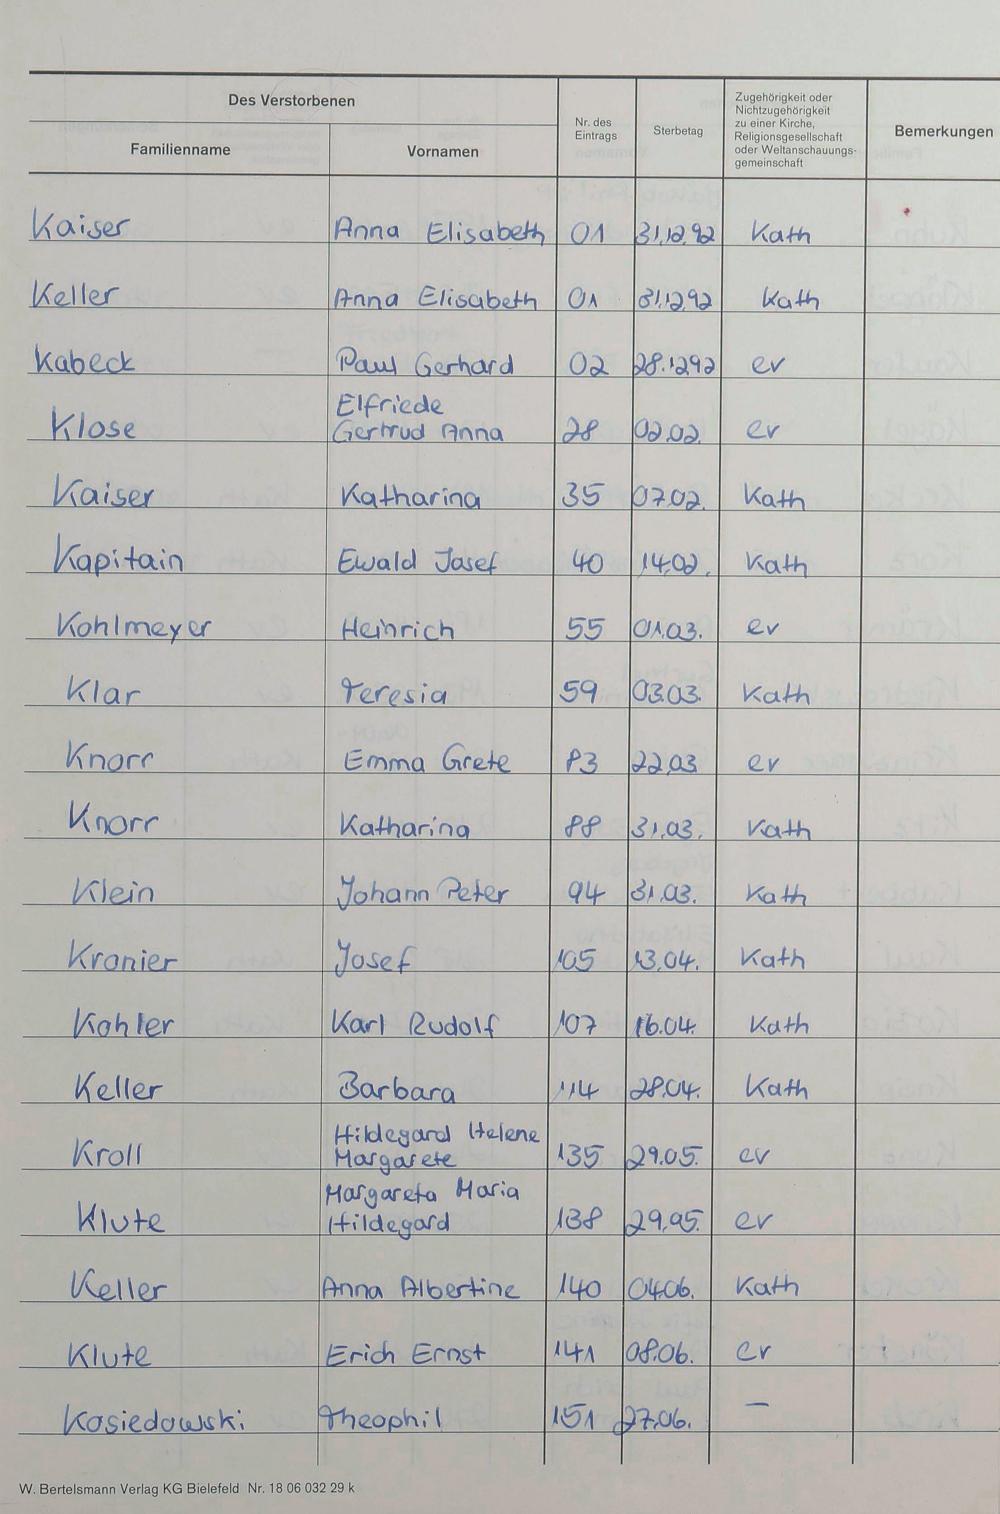 Des Verstorbenen
Familienname
Vornamen
Nr. des
Eintrags
Sterbetag
Zugehörigkeit oder
Nichtzugehörigkeit
zu einer Kirche,
Religionsgesellschaft
oder Weltanschauungs-
gemeinschaft
Bemerkungen
Kaiser Anna Elisabeth 01 31.12.92 Kath
Keller Anna Elisabeth 01 31.12.92 Kath
Kabeck Paul Gerhard 02 28.12.92 ev
Elfriede
Klose Gertrud Anna 28 02.02. ev
Kaiser Katharina 35 07.02. Kath
Kapitain Ewald Josef 40 14.02. Kath
Kohlmeyer Heinrich 55 01.03. ev
Klar Teresia 59 03.03. Kath
Knorr Emma Grete 83 22.03 ev
Knorr Katharina 88 31.03. Kath
Klein Johann Peter 94 31.03. Kath
Kranier Josef 105 13.04. Kath
Kahler Karl Rudolf 107 16.04. Kath
Keller Barbara 114 28.04. Kath
Hildegard Helene
Kroll Margarete 135 29.05. ev
Margareta Maria
Klute Hildegard 138 29.05. ev
Keller Anna Albertine 140 04.06. Kath
Klute Erich Ernst 141 08.06. ev
Kasiedowski Theophil 151 27.06. —
W. Bertelsmann Verlag KG Bielefeld Nr. 18 06 032 29 k